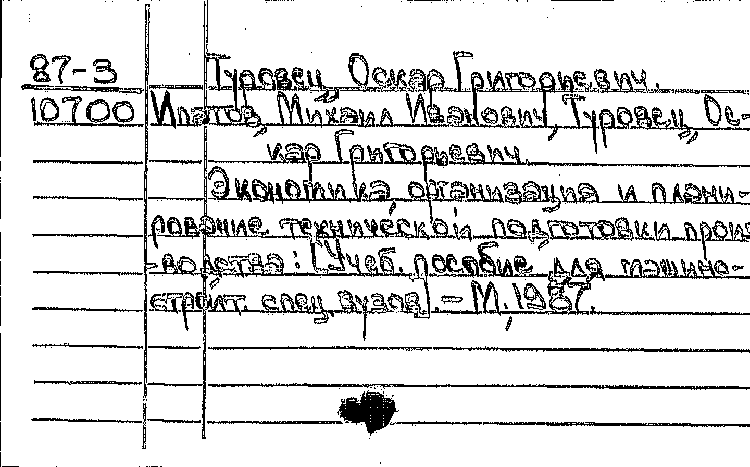 87-3 Туровец, Оскар Григорьевич.
10700 Ипатов, Михаил Иванович, Туровец, Ос-
кар Григорьевич.
Экономика, организация и плани-
рование технической подготовки произ
-водства: [Учеб. пособие для машино-
строит. спец. вузов]. - М., 1987.